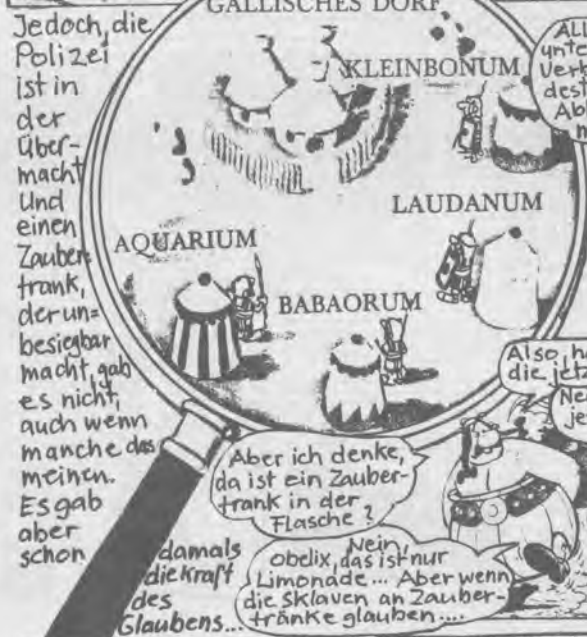 GALLISCHES DORF
Jedoch, die
Polizei
ist in
der
über-
macht
Und
einen
Zauber-
trank,
der un=
besiegbar
macht, gab
es nicht,
auch wenn
manche das
meinen.
Es gab
aber
schon
damals
die Kraft
des
Glaubens...
KLEINBONUM
LAUDANUM
AQUARIUM
BABAORUM
ALL
unte
Verk
dest
Ab
Also, h
die jetz
Ne
je
Aber ich denke,
da ist ein Zauber-
trank in der
Flasche?
Nein,
Obelix, das ist nur
Limonade... Aber wenn
die Sklaven an Zauber-
tränke glauben....